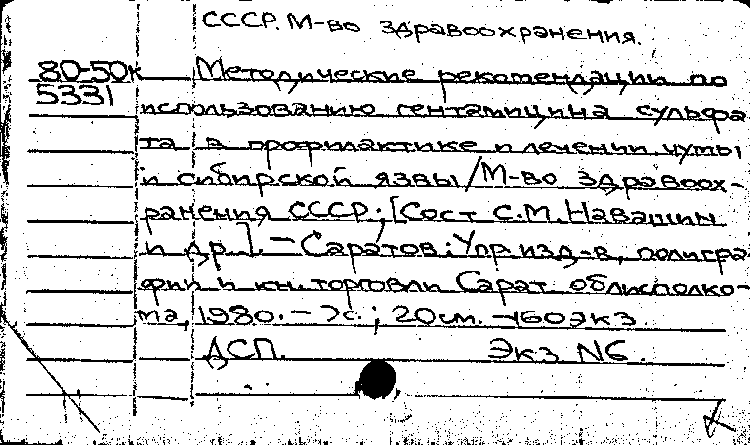 СССР. М-во здравоохранения.
80-50к Методические рекомендации по
5331
использованию гентамицина сульфа
та в профилактике и лечении чумы
и сибирской язвы/М-во здравоох-
ранения СССР; [Сост С.М. Навашин
и др.]. - Саратов: Упр. изд-в, полигра
фии и кн. торговли Сарат. облисполко-
та, 1980. - 7с.; 20см. - 160экз
ДСП. Экз N6.